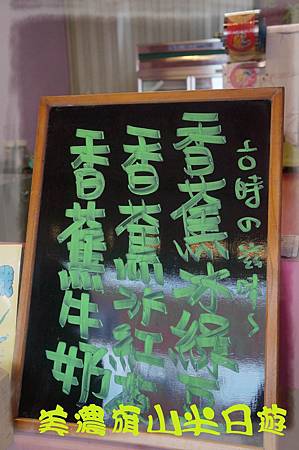 古時の滋味～
香蕉冰綠茶
香蕉冰紅茶
香蕉牛奶
美濃旗山半日遊